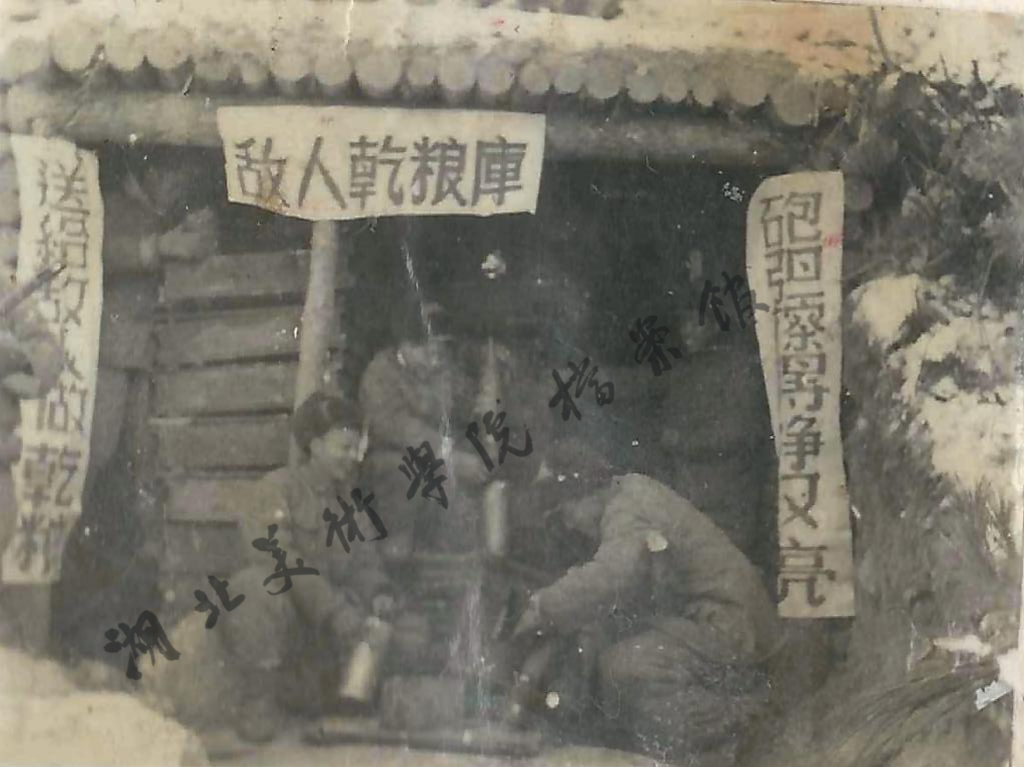 敌人乾粮庫
砲弹擦得净又亮
送給敌人做乾粮
湖北美術學院檔案館